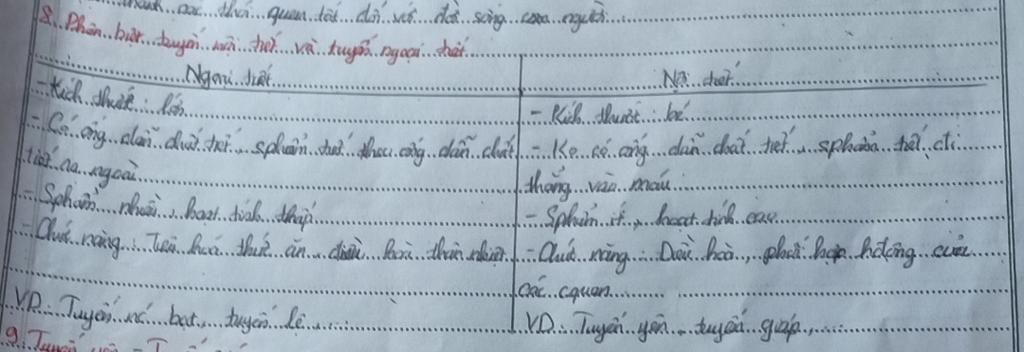 thành các thói quen tốt đối với đời sống con người
8. Phân biệt tuyến nội tiết và tuyến ngoại tiết
Ngoại tiết
- Kích thước: lớn
- Có ống dẫn chất tiết, sphẩm tiết theo ống dẫn chất
tiết ra ngoài
- Sphẩm nhiều, hoạt tính thấp
- Chức năng: Tiêu hoá thức ăn, điều hoà thân nhiệt
VD: Tuyến nc bọt, tuyến lệ,
Nội tiết
- Kích thước: bé
- Ko có ống dẫn chất tiết, sphẩm tiết đi
thẳng vào máu
- Sphẩm ít, hoạt tính cao
- Chức năng: Điều hoà, phối hợp hđộng của
các cquan
VD: Tuyến yên, tuyến giáp,
9. Tuyến yên